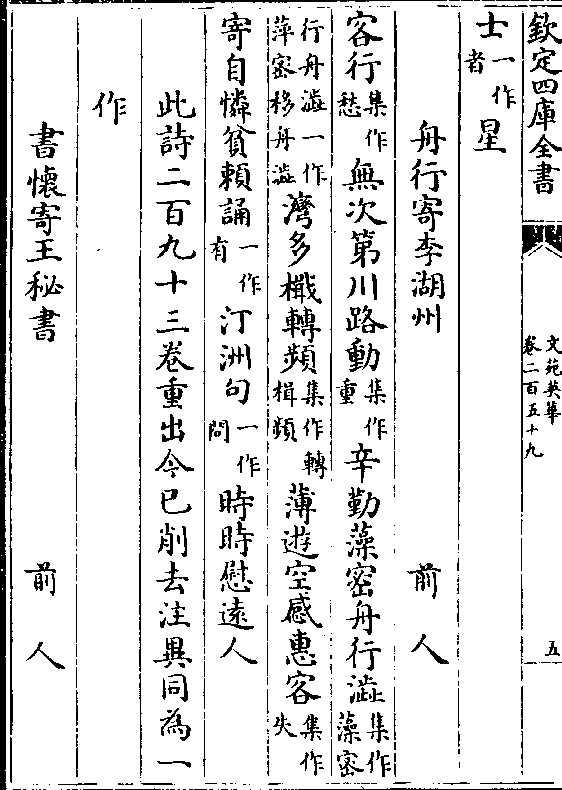 欽定四庫全書 文苑英華 卷二百五十九 五
士一作者星
舟行寄李湖州 前人
客行集作愁無次第川路動集作重辛勤藻密舟行澁集作藻密
行舟澁一作萍密移舟澁灣多檝轉頻集作轉楫頻薄遊空感惠客集作失
寄自憐貧賴誦一作有汀洲句一作問時時慰遠人
此詩二百九十三卷重出今已削去注異同為一
作
書懷寄王秘書 前人